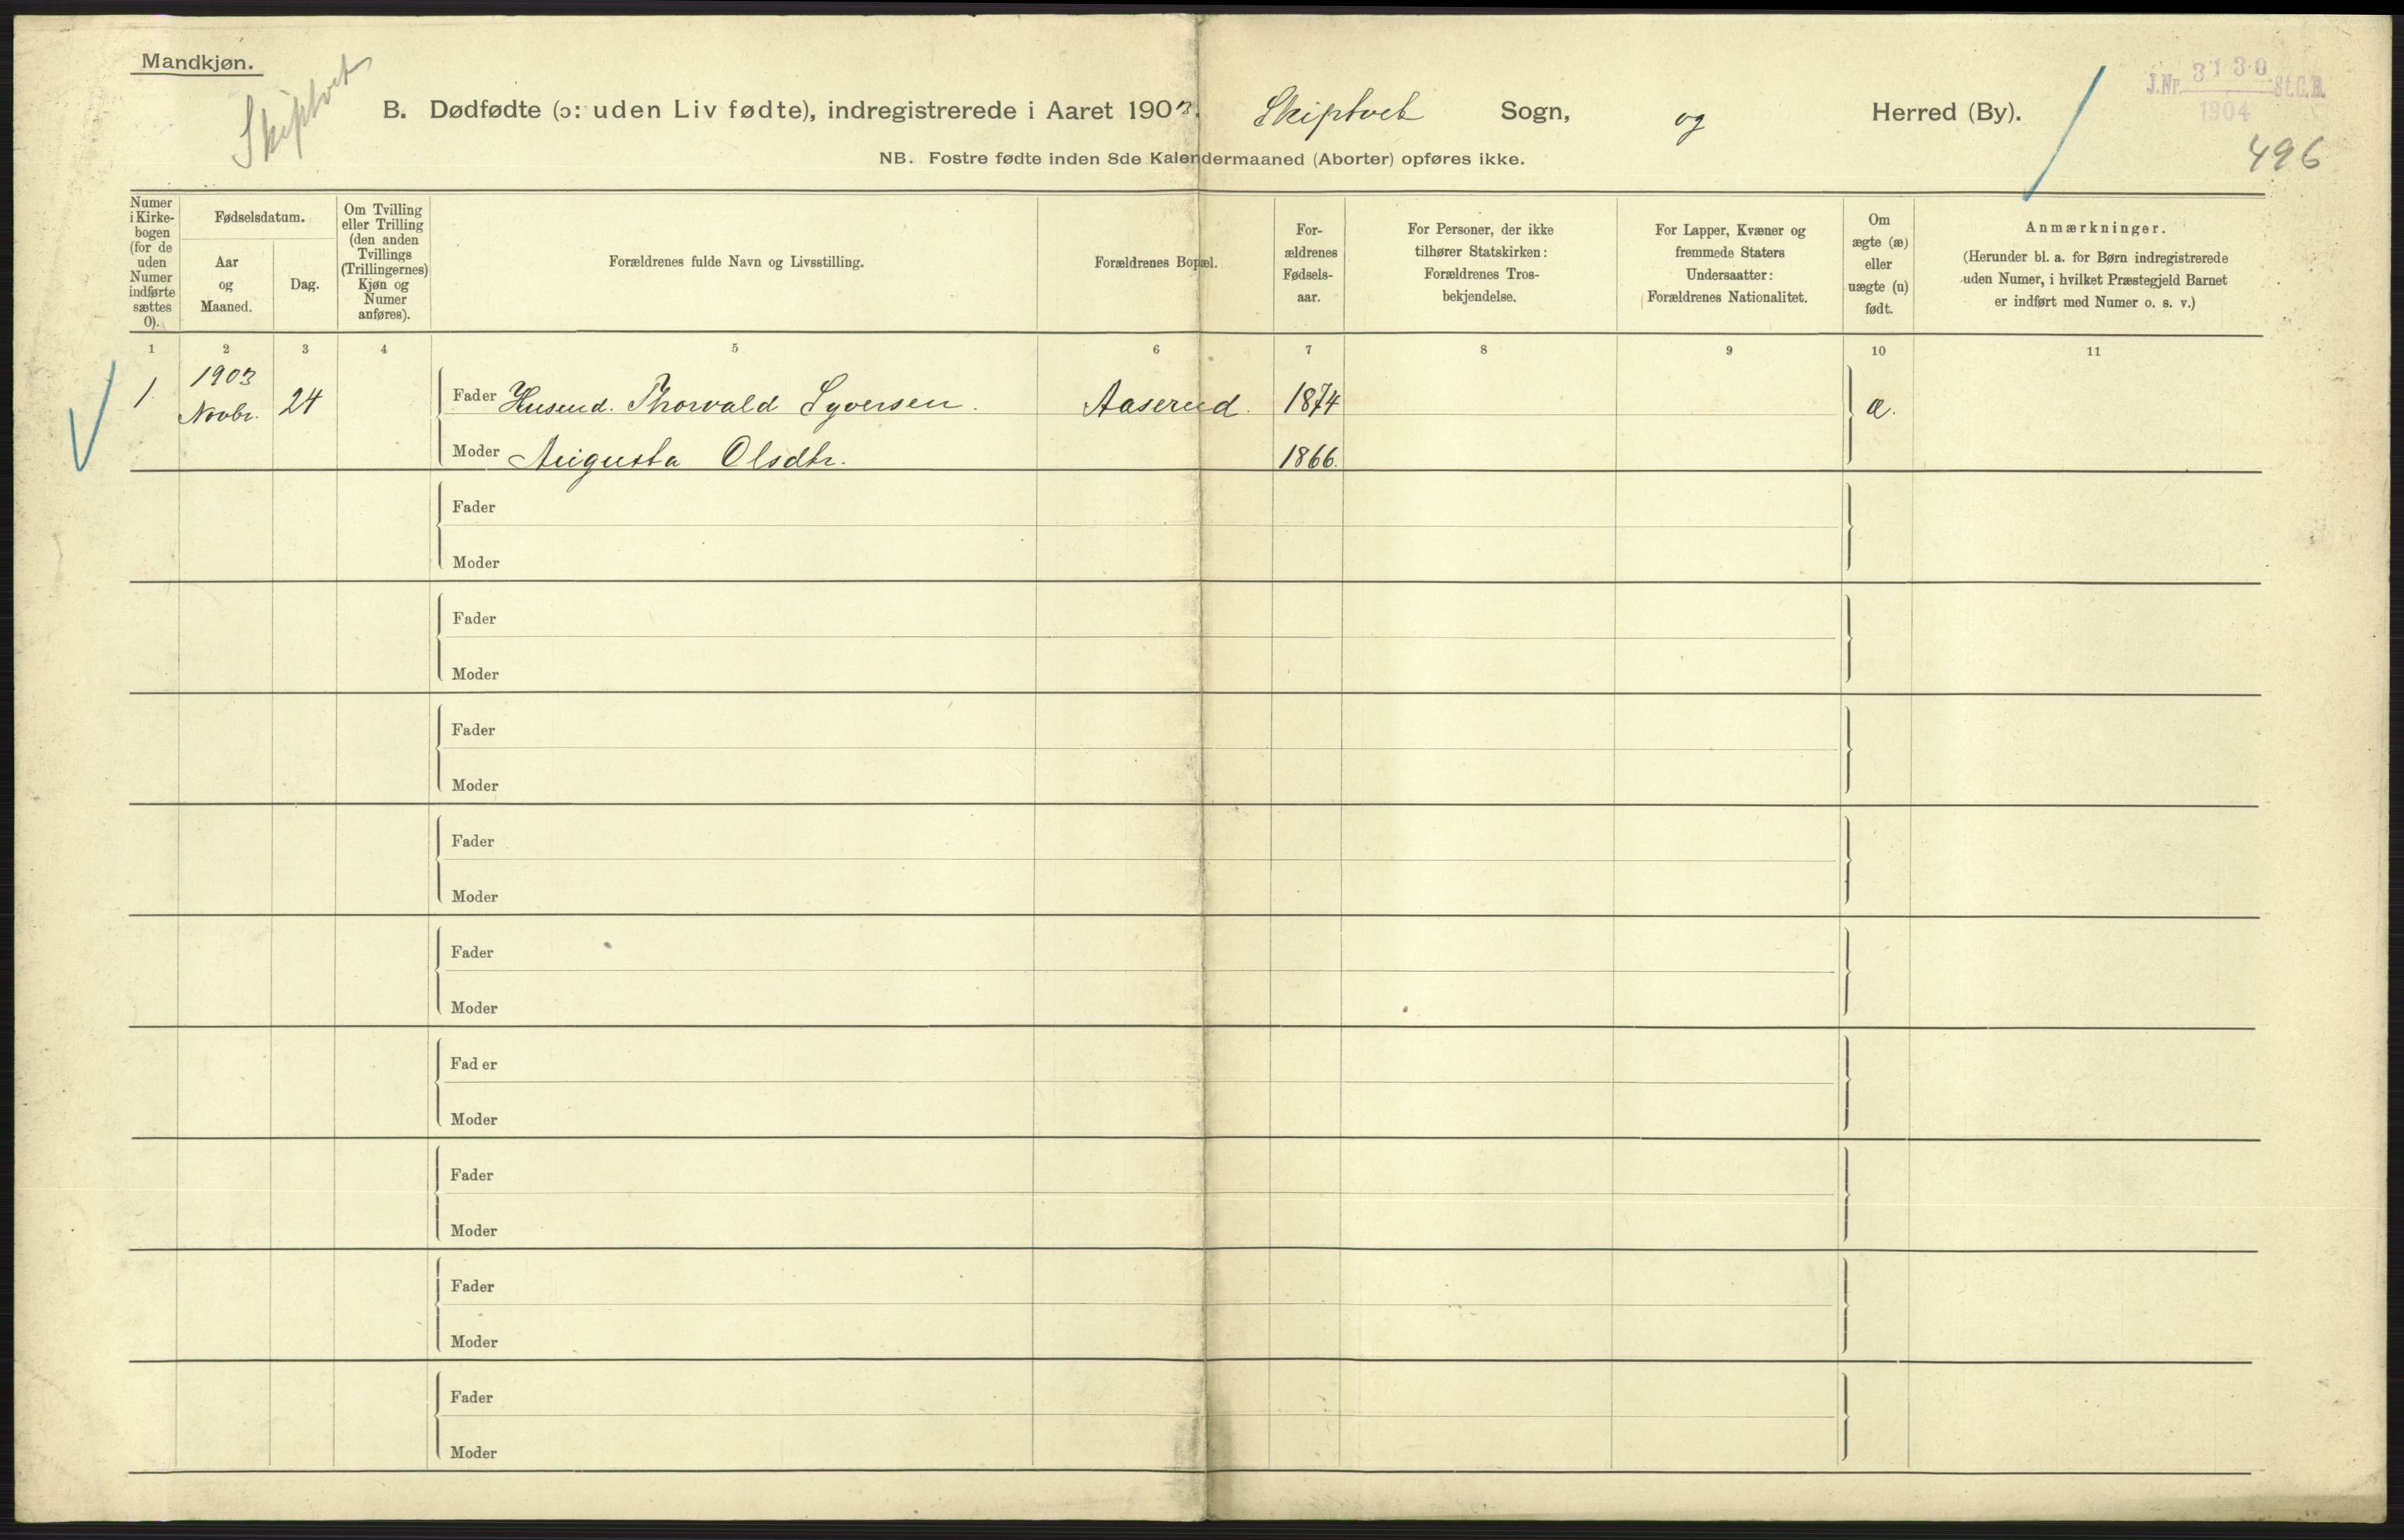 Mandkjøn.
Skiptvet
B. Dødfødte (ɔ: uden Liv fødte), indregistrerede i Aaret 1903. Skiptvet Sogn, og Herred (By).
J.Nr. 3130 St.C.B.
1904
496
NB. Fostre fødte inden 8de Kalendermaaned (Aborter) opføres ikke.
Numer
i Kirke-
bogen
(for de
uden
Numer
indførte
sættes
0).
Fødselsdatum.
Aar
og
Maaned.
Dag.
Om Tvilling
eller Trilling
(den anden
Tvillings
(Trillingernes)
Kjøn og
Numer
anføres).
Forældrenes fulde Navn og Livsstilling.
Forældrenes Bopæl.
For-
ældrenes
Fødsels-
aar.
For Personer, der ikke
tilhører Statskirken:
Forældrenes Tros-
bekjendelse.
For Lapper, Kvæner og
fremmede Staters
Undersaatter:
Forældrenes Nationalitet.
Om
ægte (æ)
eller
uægte (u)
født.
Anmærkninger.
(Herunder bl. a. for Børn indregistrerede
uden Numer, i hvilket Præstegjeld Barnet
er indført med Numer o. s. v.)
1 2 3 4 5 6 7 8 9 10 11
1. 1903 Novbr. 24 Fader Husmd. Thorvald Syversen. Aaserud. 1874 æ.
Moder Augusta Olsdtr. 1866.
Fader
Moder
Fader
Moder
Fader
Moder
Fader
Moder
Fader
Moder
Fader
Moder
Fader
Moder
Fader
Moder
Fader
Moder